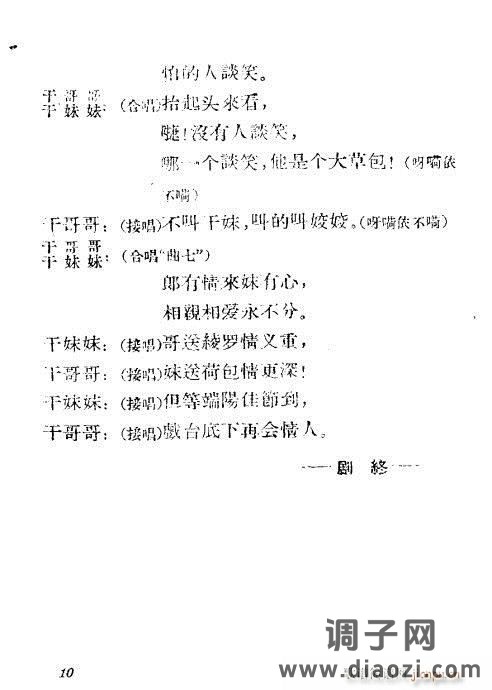 怕的人談笑。
干哥哥
干妹妹：(合唱)抬起头來看，
嘡！沒有人談笑，
哪一个談笑，他是个大草包！(呀嗬依
不嗬)
干哥哥：(接唱)不叫干妹，叫的叫姣姣。(呀嗬依不嗬)
干哥哥
干妹妹：(合唱“曲七”)
郎有情來妹有心，
相親相爱永不分。
干妹妹：(接唱)哥送綾罗情义重，
干哥哥：(接唱)妹送荷包情更深！
干妹妹：(接唱)但等端陽佳節到，
干哥哥：(接唱)戲台底下再会情人。
——劇 終——
10
调子网
www.diaozi.com